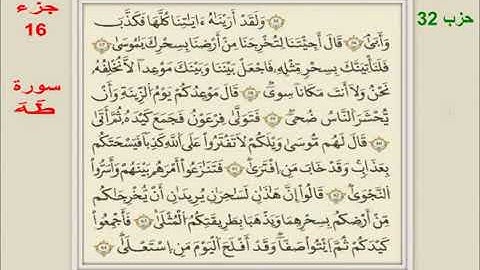 جزء
16
حزب 32
سورة
طه
وَلَقَدْ أَرَيْنَٰهُ ءَايَٰتِنَا كُلَّهَا فَكَذَّبَ
وَأَبَىٰ قَالَ أَجِئْتَنَا لِتُخْرِجَنَا مِنْ أَرْضِنَا بِسِحْرِكَ يَٰمُوسَىٰ
فَلَنَأْتِيَنَّكَ بِسِحْرٍ مِّثْلِهِۦ فَاجْعَلْ بَيْنَنَا وَبَيْنَكَ مَوْعِدًا لَّا نُخْلِفُهُۥ
نَحْنُ وَلَا أَنتَ مَكَانًا سِوًى قَالَ مَوْعِدُكُمْ يَوْمُ الزِّينَةِ وَأَنْ
يُّحْشَرَ النَّاسُ ضُحًى فَتَوَلَّىٰ فِرْعَوْنُ فَجَمَعَ كَيْدَهُۥ ثُمَّ أَتَىٰ
قَالَ لَهُم مُّوسَىٰ وَيْلَكُمْ لَا تَفْتَرُوا عَلَى اللَّهِ كَذِبًا فَيَسْحَتَكُم
بِعَذَابٍ وَقَدْ خَابَ مَنِ افْتَرَىٰ فَتَنَٰزَعُوا أَمْرَهُم بَيْنَهُمْ وَأَسَرُّوا
النَّجْوَىٰ قَالُوا إِنَّ هَٰذَٰنِ لَسَٰحِرَٰنِ يُرِيدَٰنِ أَنْ يُّخْرِجَٰكُم
مِّنْ أَرْضِكُم بِسِحْرِهِمَا وَيَذْهَبَا بِطَرِيقَتِكُمُ الْمُثْلَىٰ فَأَجْمِعُوا
كَيْدَكُمْ ثُمَّ ائْتُوا صَفًّا وَقَدْ أَفْلَحَ الْيَوْمَ مَنِ اسْتَعْلَىٰ